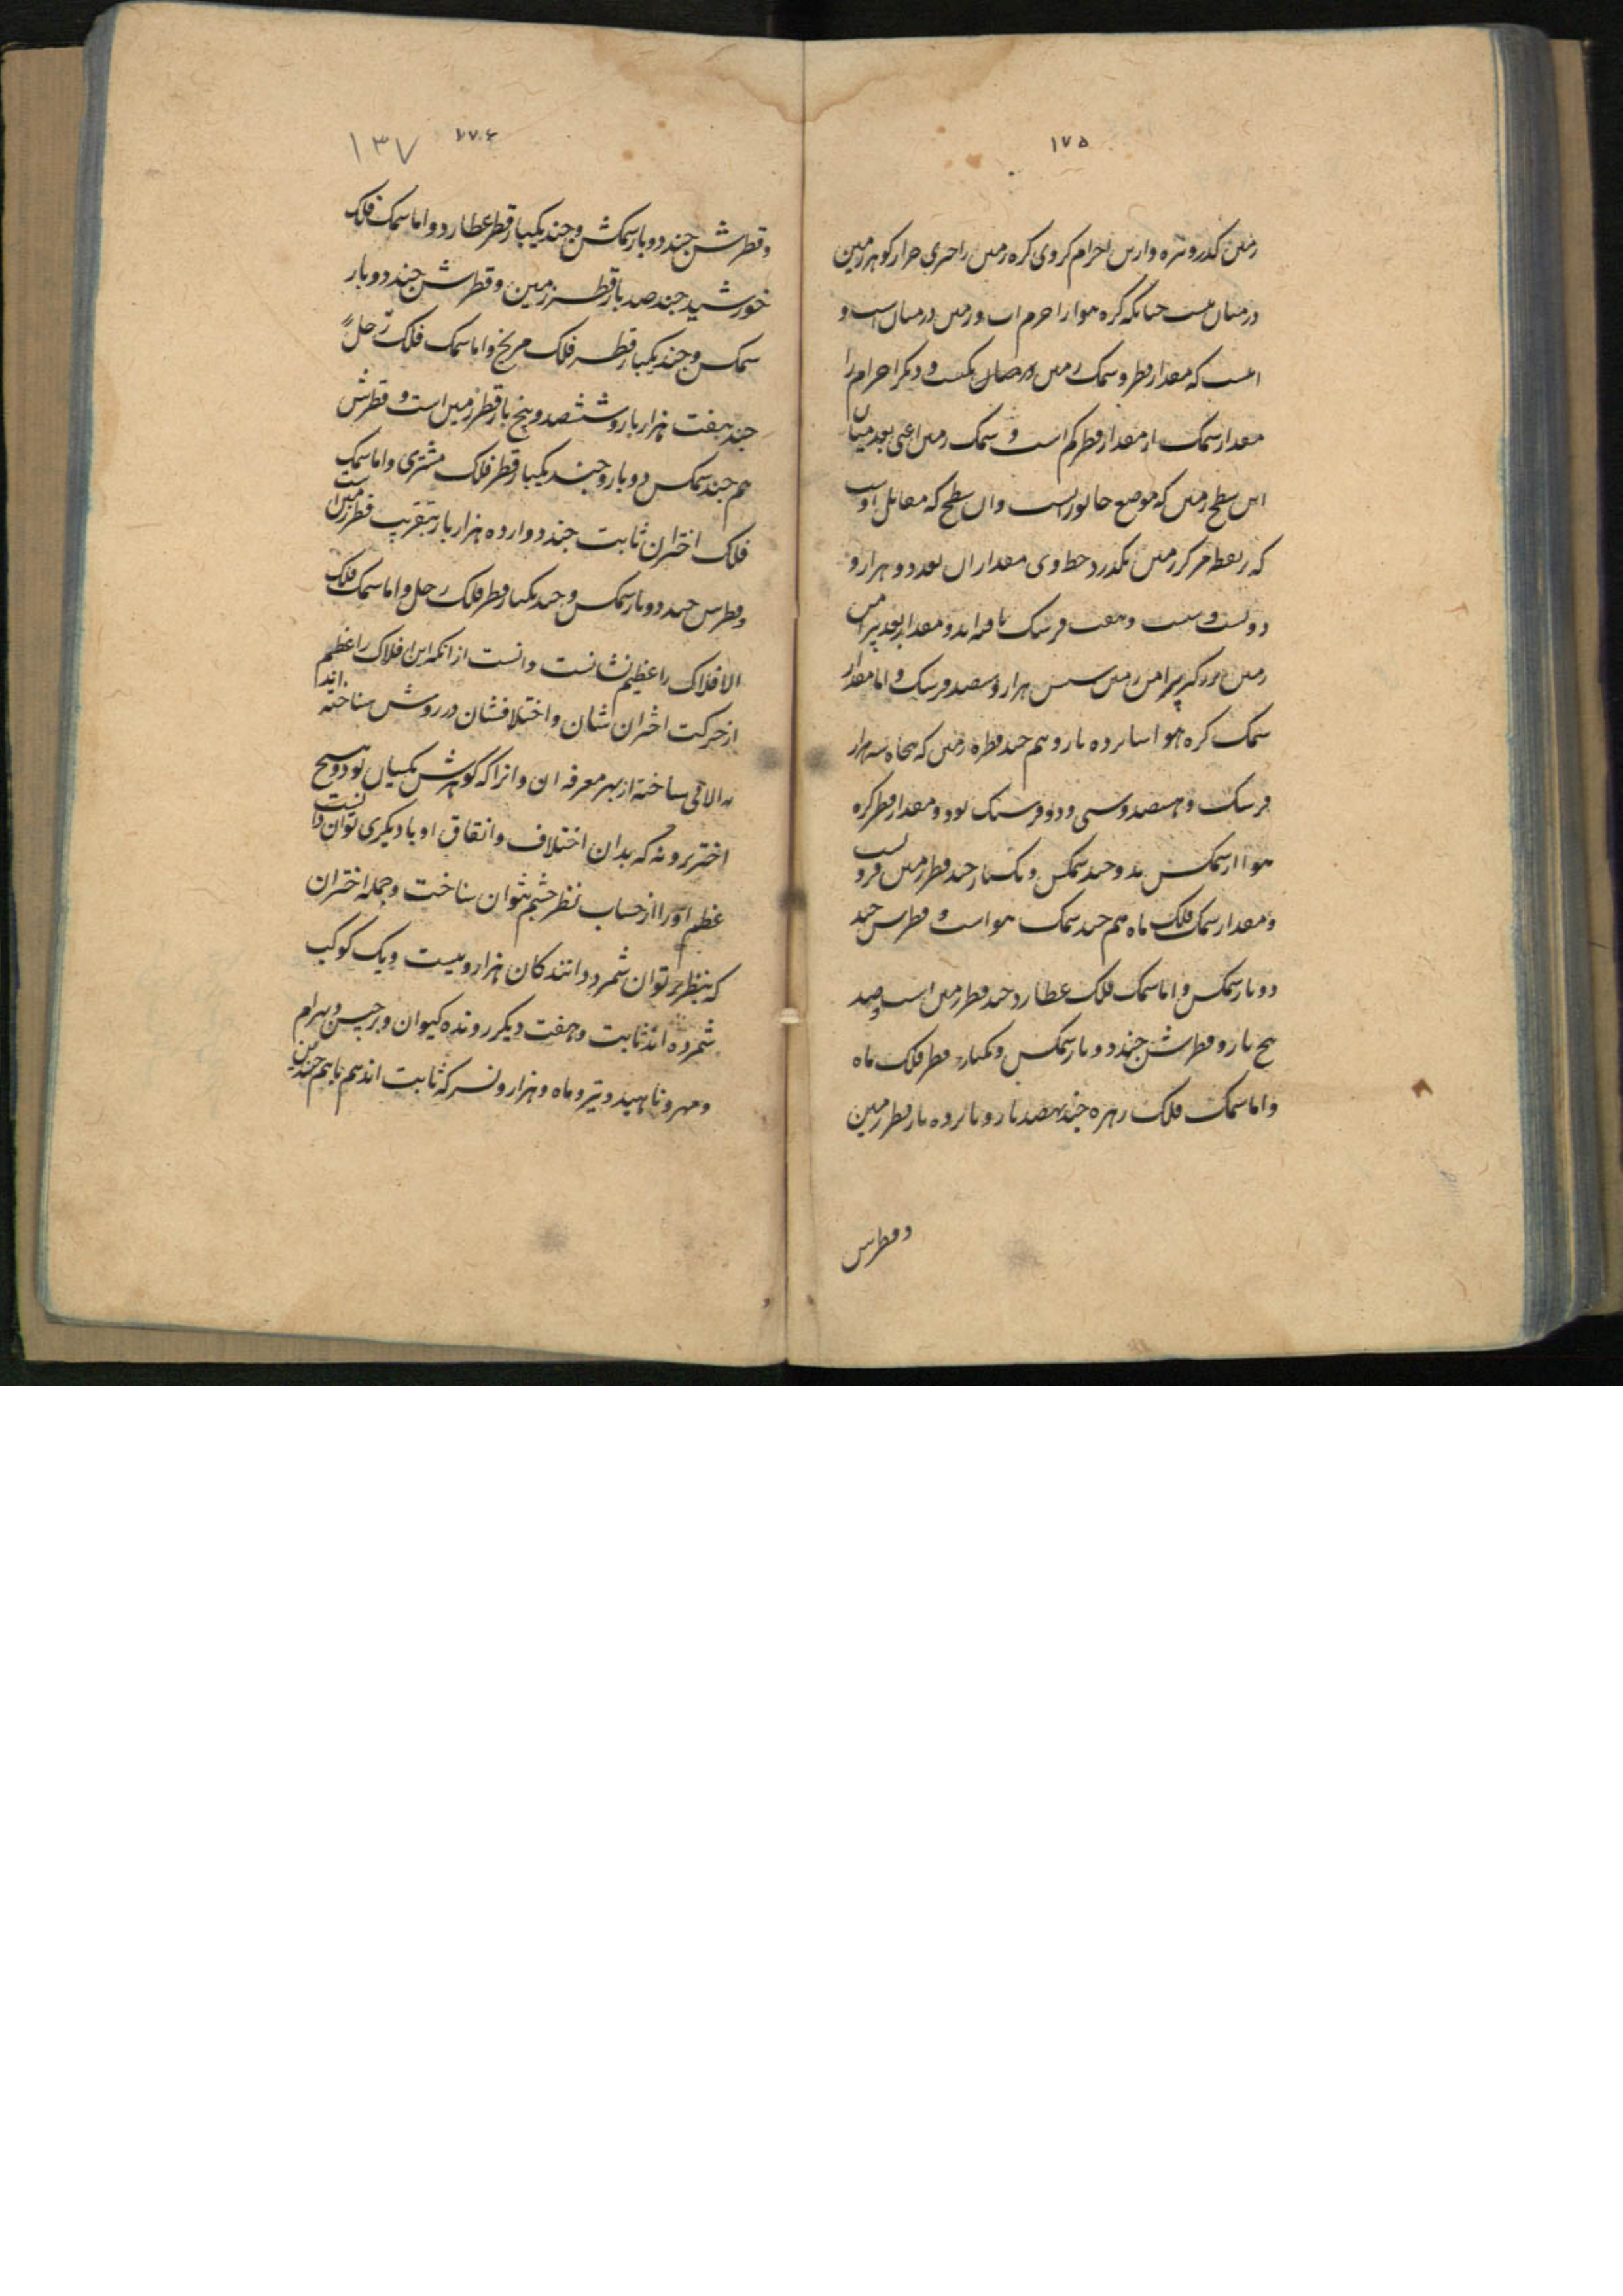 ۱۷۵
زمین کدر و تیره و ازین اجرام کروی کره زمین را چیزی جز از گوهر زمین
در میان نیست چنانکه کره هوا را اجرم اب و زمین در میان است و
انست که مقدار قطر و سمک زمین یکیست و دیگر اجرام را
مقدار سمک از مقدار قطر کم است و سمک زمین اعنی بعد میان
این سطح زمین که موضع جانورانست و ان سطح که مقابل اوست
که بر نقطه مرکز زمین بگذرد خط وی مقدار ان بعد دو هزار و
دویست و بیست و هفت فرسنک یافته اند و مقدار بعد پیرامن
زمین پیرامن زمین شش هزار و سیصد فرسنک و اما مقدار
سمک کره هوا پانزده بار و نیم چند قطر زمین که پنجاه سه هزار
فرسنک و هیصد و سی و دو فرسنک بود و مقدار قطر کره
هوا از سمکش بدو چند سمکش و یکبار چند قطر زمین فزونست
و مقدار سمک فلک ماه هم چند سمک هواست و قطرش چند
دو بار سمکش و اما سمک فلک عطارد چند قطر زمین است صد
پنج بار و قطرش چند دو بار سمکش و یکبار قطر فلک ماه
و اما سمک فلک زهره چند نهصد بار و پانزده بار قطر زمین
و قطرش
۱۷۶
۱۳۷
و قطرش چند دو بار سمکش و چند یکبار قطر عطارد و اما سمک فلک
خورشید چند صد بار قطر زمین و قطرش چند دو بار
سمکس و چند یکبار قطر فلک مریخ و اما سمک فلک زحل
چند هفت هزار بار و ششصد و پنج بار قطر زمین است و قطرش
هم چند سمکس دو بار و چند یکبار قطر فلک مشتری و اما سمک
فلک اختران ثابت چند دوازده هزار بار بتقریب قطر زمین است
و قطرس چند دو بار سمکس و چند یکبار قطر فلک زحل و اما سمک فلک
الافلاک را عظیم نشانست و انست از انکه این افلاک را عظم
از حرکت اختران شان و اختلافشان در روش شناخته اند
نه الاتی ساخته از بهر معرفه ان و انرا که گوهرش یکسان بود و هیچ
اختر برو نه که بدان اختلاف و اتفاق او با دیکری توان دانست
عظم او را از حساب نظر چشم نتوان شناخت و جمله اختران
که بنظر بر توان شمرد دانندکان هزار و بیست و یک کوکب
شمرده اند ثابت و هفت دیکر رونده کیوان و برجیس و بهرام
و مهر و ناهید و تیر و ماه و هزار و نسر که ثابت اند هم باهم چندین